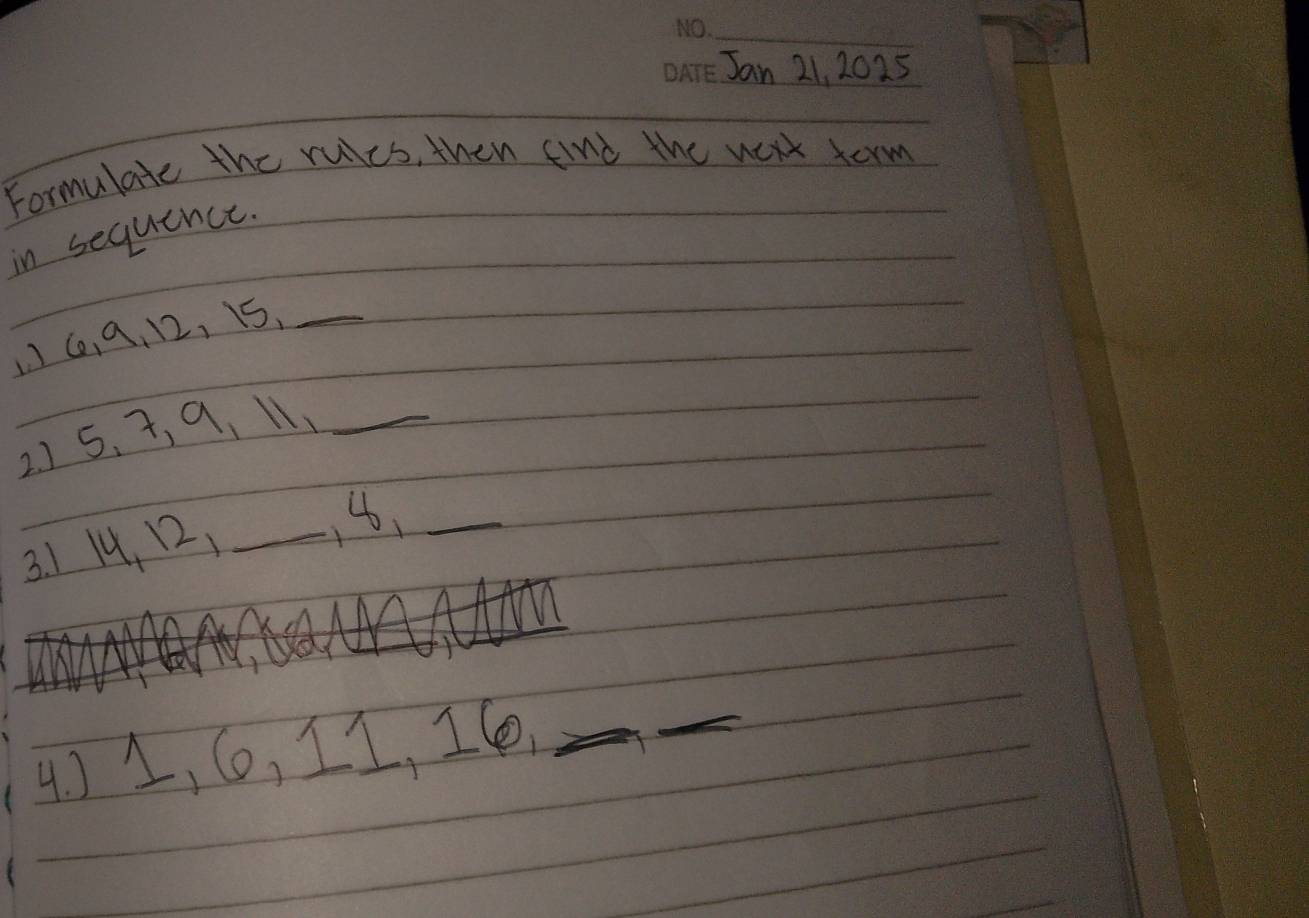 NO.
DATE Jan 21, 2025
Formulate the rules, then find the next term
in sequence.
1.) 6, 9, 12, 15, __
2.) 5, 7, 9, 11, __
3.) 14, 12, __, 8, __
4.) 1, 6, 11, 16, __, __